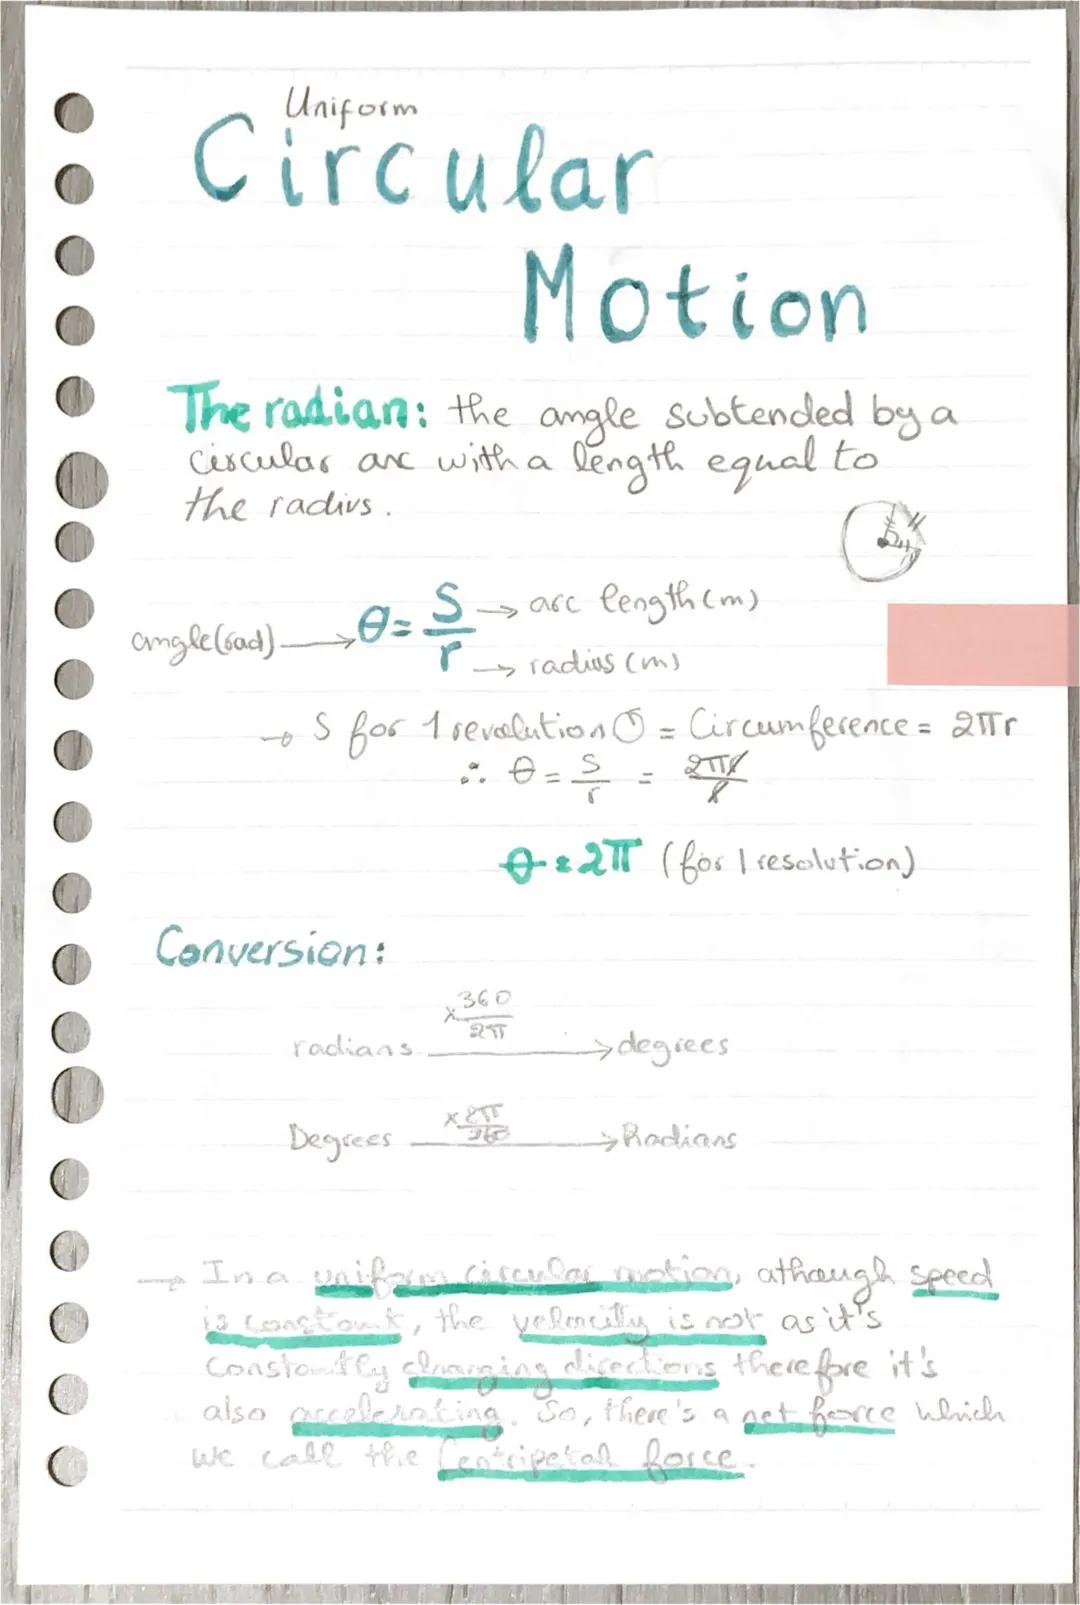 Uniform
Circular
Motion
The radian: the angle subtended by a
circular arc with a length equal to
the radius.
angle (rad) → θ = S/r → arc length (m)
→ radius (m)
→ S for 1 revolution = Circumference = 2πr
∴ θ = S/r = 2πr/r
θ = 2π (for 1 resolution)
Conversion:
×360/2π
radians → degrees
×2π/360
Degrees → Radians
→ In a uniform circular motion, athough speed
is constant, the velocity is not as it's
constantly changing directions therefore it's
also accelerating. So, there's a net force which
we call the Centripetal force.